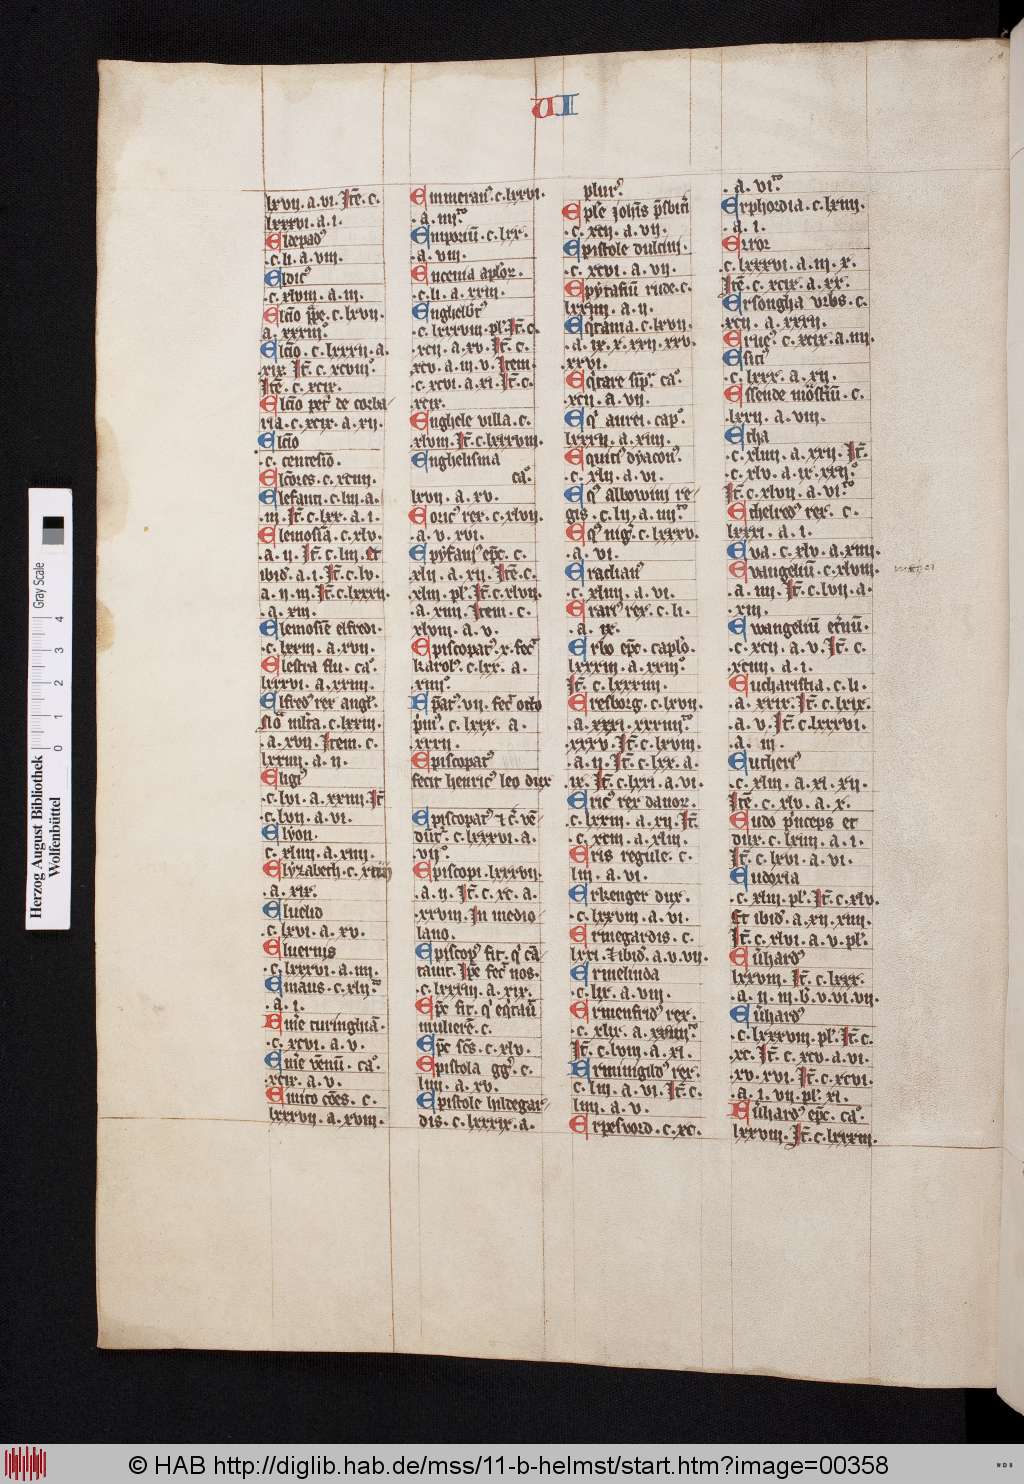 VI
lxvii. a. vi. Itē. c.
lxxxvi. a. i.
Eldepad᾽
.c. li. a. viii.
Eldic᾽
.c. xlviii. a. iii.
Elcio ppe. c. lxvii.
a. xxxiii°.
Elcio. c. lxxxii. a.
xix. It̄. c. xcviii°.
Itē. c. xcix.
Elcio pet᾽ de corba
ria. c. xcix. a. xii.
Elcio
.c. centesio.
Elcores. c. xciiii.
Elefanti. c. liii. a.
.iii. It̄. c. lxx. a. i.
Elemosia. c. xlv.
.a. ii. It̄. c. liii. Et
ibid. a. i. It̄. c. lv.
a. ii. iii. It̄. c. lxxxii.
.a. xiii.
Elemosie elfredi.
.c. lxxiii. a. xvii.
Elestra flu. ca°.
lxxxvi. a. xxiiii.
Elfred᾽ rex angl᾽.
c. lxxiii.
.a. xvii. Item. c.
lxxiiii. a. ii.
Eligi᾽
.c. lvi. a. xxiiii. It̄
.c. lvii. a. vi.
Elyon.
c. xliiii. a. xiiii.
Elyzabeth. c.
.a. xix.
Eluelid
.c. lxvi. a. xv.
Eluernis
.c. lxxxvi. a. iiii.
Emaus. c. xlii
.a. i.
turinghia.
.c. xcvi. a. v.
ca°.
.xcix. a. v.
Emico coes. c.
lxxxvii. a. xviii.
Emmeran᾽. c. lxxvi.
.a. iiii
Emporiū. c. lxx.
.a. viii.
Encenia aplor.
.c. li. a. xxiii.
Enghelb᾽t᾽
.c. lxxxviii. pl᾽. It̄. c.
.xcii. a. xv. It̄. c.
xcv. a. iii. v. Item.
.c. xcvi. a. xi. It̄. c.
.xcix.
Enghele villa. c.
xlviii. It̄. c. lxxxviii.
Enghelisma
ca°.
lxvii. a. xv.
Eoric᾽ rex. c. xlvii.
.a. v. xvi.
Epyfani᾽ epc. c.
xlii. a. xii. Itē. c.
xliii. pl᾽. It̄. c. xlvii.
.a. xvii. Item. c.
xlviii. a. v.
Episcopat᾽. x. fec᾽
karol᾽. c. lxx. a.
.xiiii°.
Epat᾽. vii. fec᾽ octo
p᾽m᾽. c. lxxx. a.
.xxxii.
Episcopat᾽
fecit henric᾽ leo dux
Episcopat᾽
c. lxxxvi. a.
.vii°.
Episcopi. lxxxvii.
.a. ii. It̄. c. xc. a.
.xxviii. In medio
lano.
Episcop᾽ fit. q᾽ ca
tauit. Ipe fec᾽ nos.
.c. lxxxiii. a. xix.
Epc fit. q᾽
muliere. c.
Epc scs. c. xlv.
Epistola gg᾽. c.
liiii. a. xv.
Epistole hildegar
dis. c. lxxxix. a.
plur᾽.
Eple Johis psbiti
.c. xcii. a. vii.
Epistole dulcini.
.c. xcvi. a. vii.
Epytafiū rude. c.
lxxiiii. a. ii.
Eqtania. c. lxvii.
.a. ix. x. xxii. xxv.
xxvi.
Eqtare sup᾽. ca°.
xcii. a. vii.
Eq᾽ aurei. cap°.
lxxxii. a. xiiii.
Equit᾽ dyacon᾽.
.c. xlii. a. vi.
Eq᾽ albowini re
gis. c. lii. a. iiii
Eq᾽ nig᾽. c. lxxxv.
.a. vi.
Eraclian᾽
.c. xliiii. a. vi.
Erari᾽ rex. c. li.
.a. ix.
Erbo epc. caplo.
lxxxiii. a. xxiii°.
It̄. c. lxxxiiii.
Eresborg. c. lxvii.
.a. xxxi. xxxiiii
.xxxv. It̄. c. lxviii.
.a. ii. It̄. c. lxx. a.
ix. It̄. c. lxxi. a. vi.
Eric᾽ rex danor.
.c. lxxiii. a. xii. It̄.
.c. xciii. a. xliii.
Eris regule. c.
liii. a. vi.
Erkenger dux.
.c. lxxviii. a. vi.
Ermegardis. c.
lxxi. ⁊ ibid. a. v. vii.
Ermelinda
.c. lix. a. viii.
Ermenfrid᾽ rex.
.c. xlix. a.
It̄. c. lviii. a. xi.
Ermingild᾽ rex.
c. liii. a. vi. It̄. c.
liiii. a. v.
Erpesvord. c. xc.
.a. vi
Erphordia. c. lxiiii.
.a. i.
Error
.c. lxxxvi. a. iii. x.
Itē. c. xcix. a. xx.
Ersongha vrbs. c.
xcii. a. xxxii.
Eruc᾽. c. xcix. a. iiii.
Esiti᾽
.c. lxxx. a. xii.
Essende. c.
.lxxii. a. viii.
Etha
.c. xliiii. a. xxii. It̄.
.c. xlv. a. ix. xxii°.
It̄. c. xlvii. a. vi
Ethelred᾽ rex. c.
lxxxi. a. i.
Eva. c. xlv. a. xiiii.
Evangeliū. c. xlviii.
.a. iiii. It̄. c. lvii. a.
.xiii.
Ewangeliū et᾽nū.
.c. xcii. a. v. It̄. c.
xciiii. a. i.
Eucharistia. c. li.
.a. xxix. It̄. c. lxix.
.a. v. It̄. c. lxxxvi.
.a. iii.
Eucheri᾽
.c. xliii. a. xi. xii.
Itē. c. xlv. a. x.
Eudo p᾽nceps et
dux. c. lxiiii. a. i.
It̄. c. lxvi. a. vi.
Eudoxia
.c. xliii. pl᾽. It̄. c. xlv.
Et ibid. a. xii. xiiii.
It̄. c. xlvi. a. v. pl᾽.
Eu᾽hard᾽
lxxviii. It̄. c. lxxx.
.a. ii. iii. v. vi. vii.
Eu᾽hard᾽
.c. lxxxviii. pl᾽. It̄. c.
.xc. It̄. c. xcv. a. vi.
.xv. xvi. It̄. c. xcvi.
.a. i. vii. pl᾽. xi.
Eu᾽hard᾽ epc. ca°.
lxxviii. It̄. c. lxxxiii.
Herzog August Bibliothek
Wolfenbüttel
0 1 2 3 4
Gray Scale
© HAB http://diglib.hab.de/mss/11-b-helmst/start.htm?image=00358